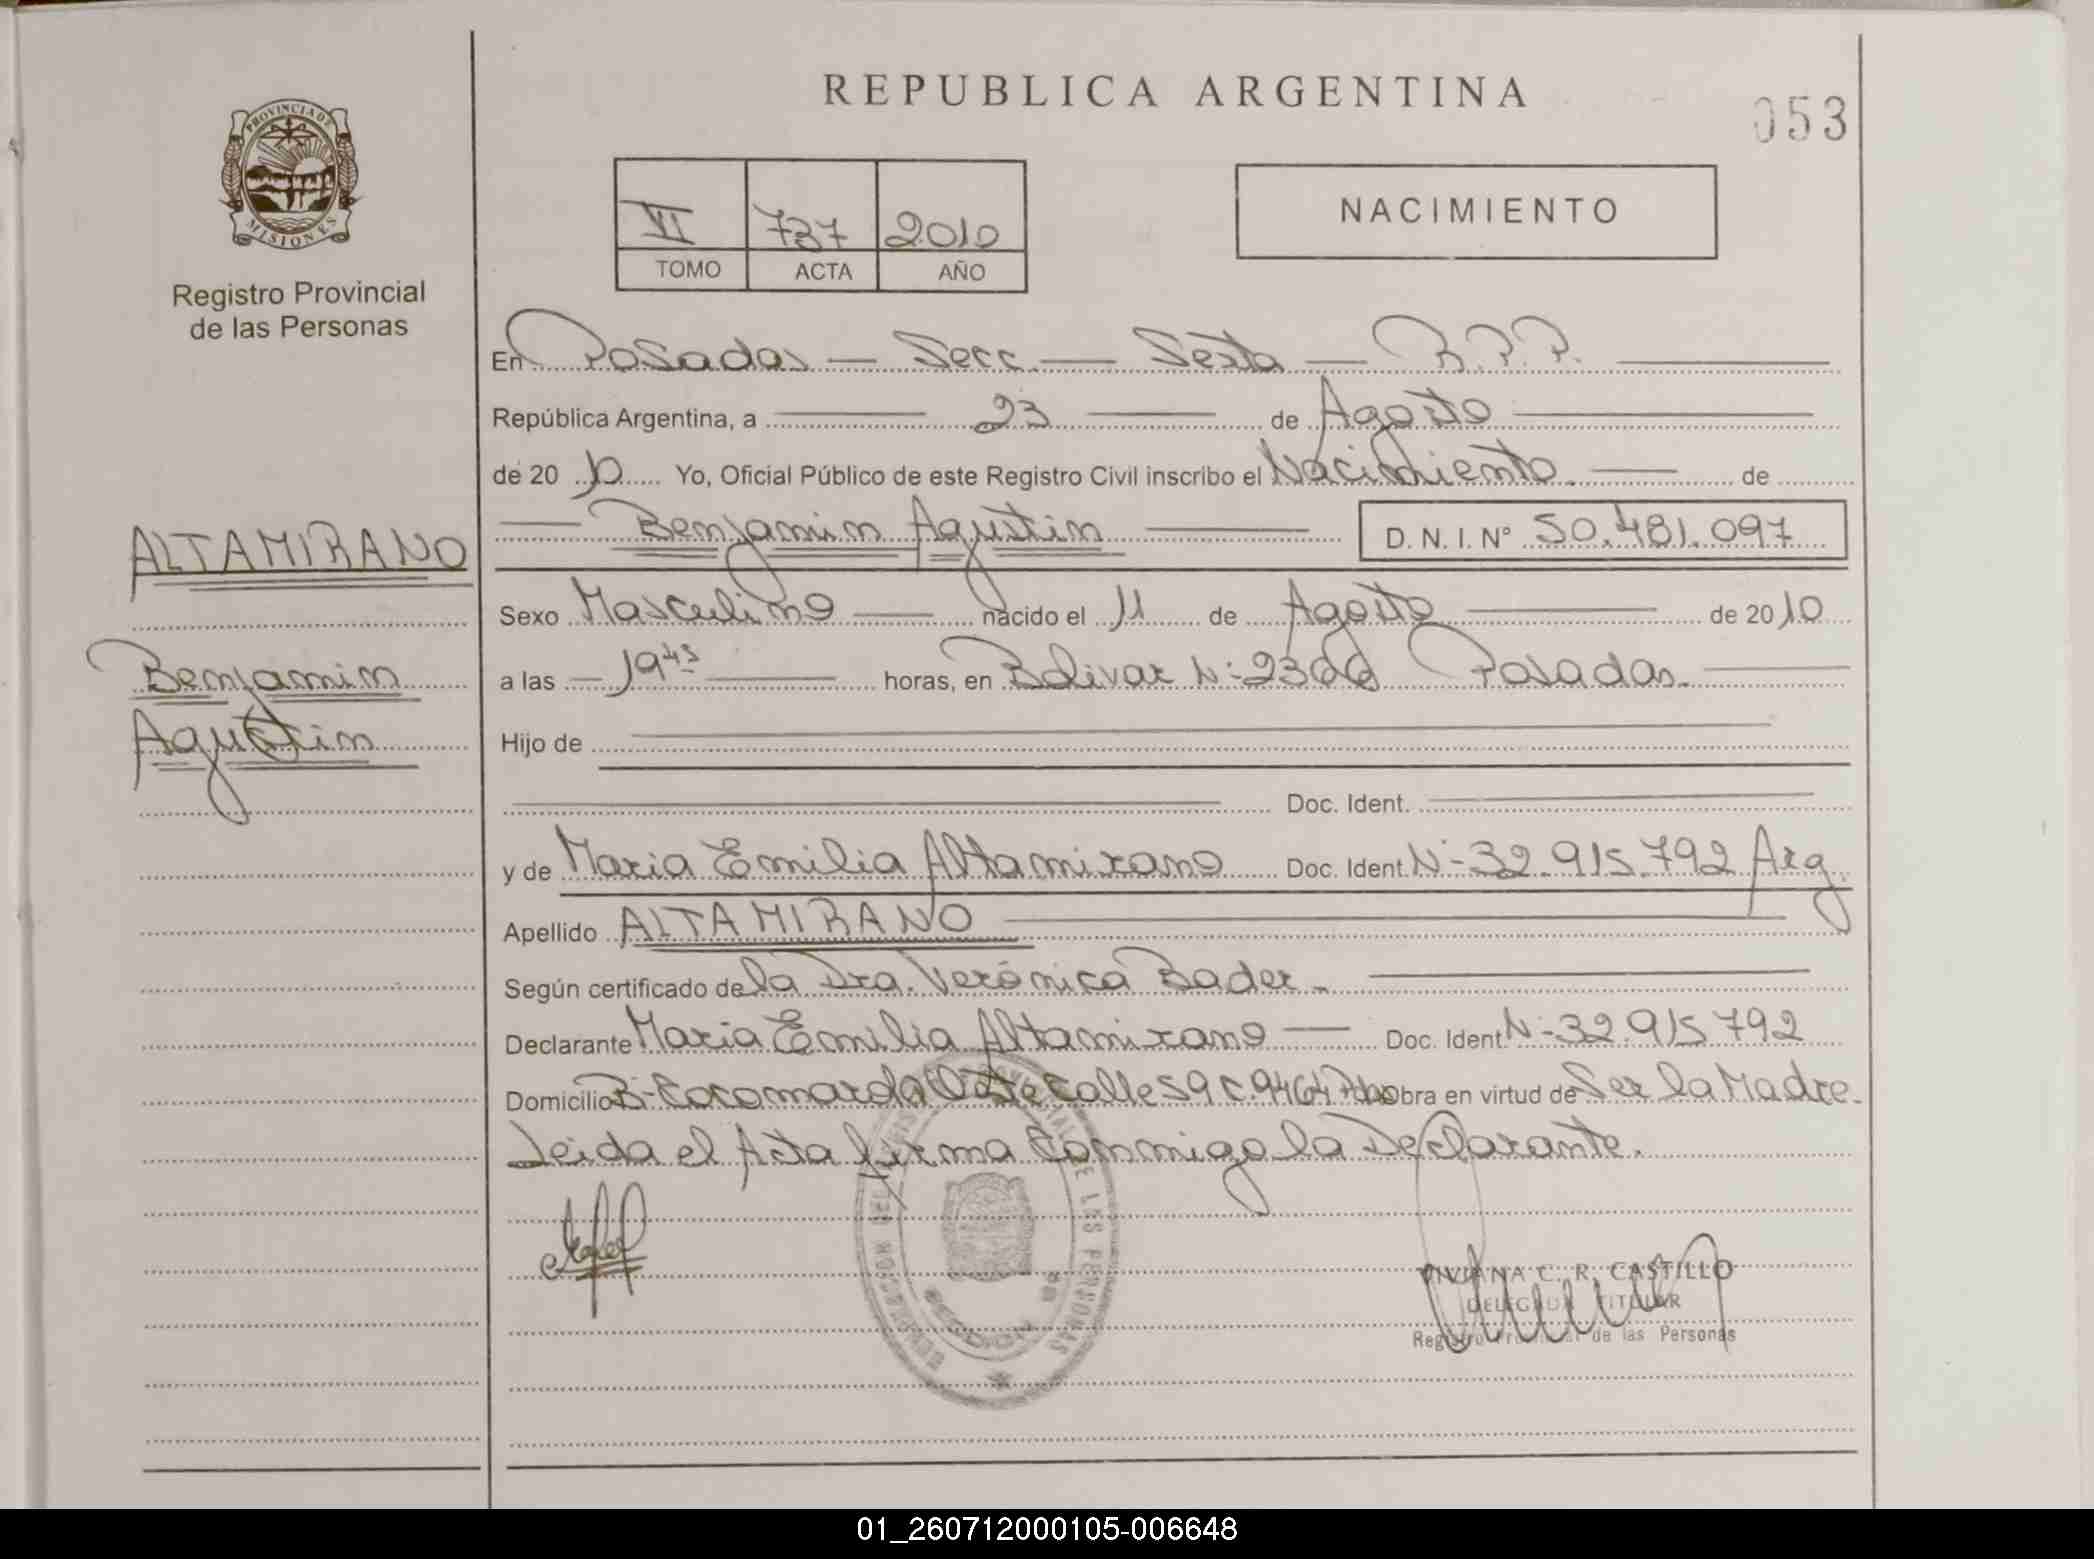 REPUBLICA ARGENTINA
053
PROVINCIA DE
MISIONES
Registro Provincial
de las Personas
VI 737 2010
TOMO ACTA AÑO
NACIMIENTO
En Posadas — Secc. — Sexta — R.P.P.
República Argentina, a 23 de Agosto
de 20 10 Yo, Oficial Público de este Registro Civil inscribo el Nacimiento. de
Benjamin Agustin D. N. I. Nº 50.481.097
ALTAMIRANO
Benjamin
Agustin
Sexo Masculino nacido el 11 de Agosto de 2010
a las 19 45 horas, en Bolivar Nº 2366 Posadas.
Hijo de
Doc. Ident.
y de Maria Emilia Altamirano Doc. Ident. Nº 32.915.792 Arg.
Apellido ALTAMIRANO
Según certificado de la Dra. Verónica Bader.
Declarante Maria Emilia Altamirano Doc. Ident. Nº 32.915.792
Domicilio Bº Cocomarola Oeste Calle 59 C. 9464 Pdas obra en virtud de Ser la Madre.
Leida el Acta firma Conmigo la Declarante.
VIVIANA C. R. CASTILLO
DELEGADA TITULAR
Registro Provincial de las Personas
DE LAS PERSONAS
SECCION
01_260712000105-006648